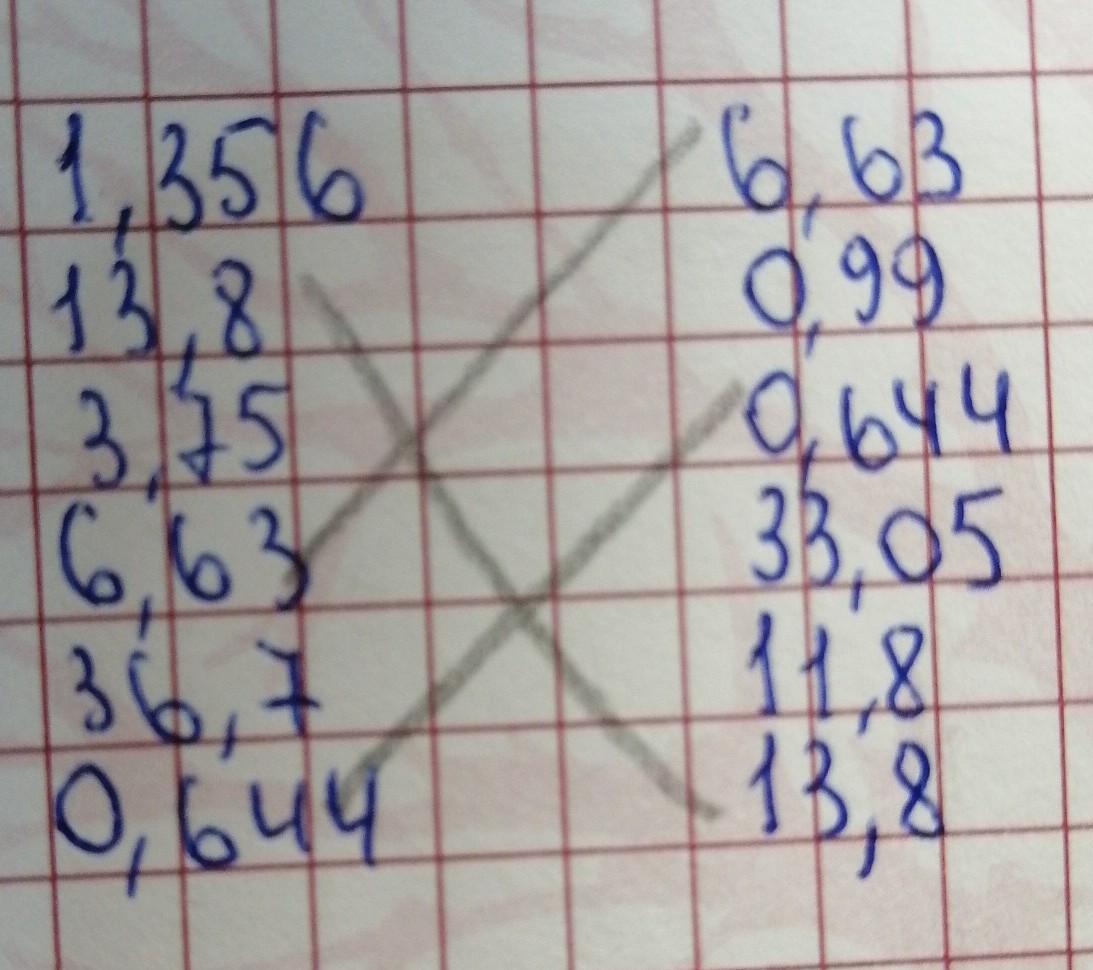 1,356 6,63
13,8 0,99
3,75 0,644
6,63 33,05
36,7 11,8
0,644 13,8